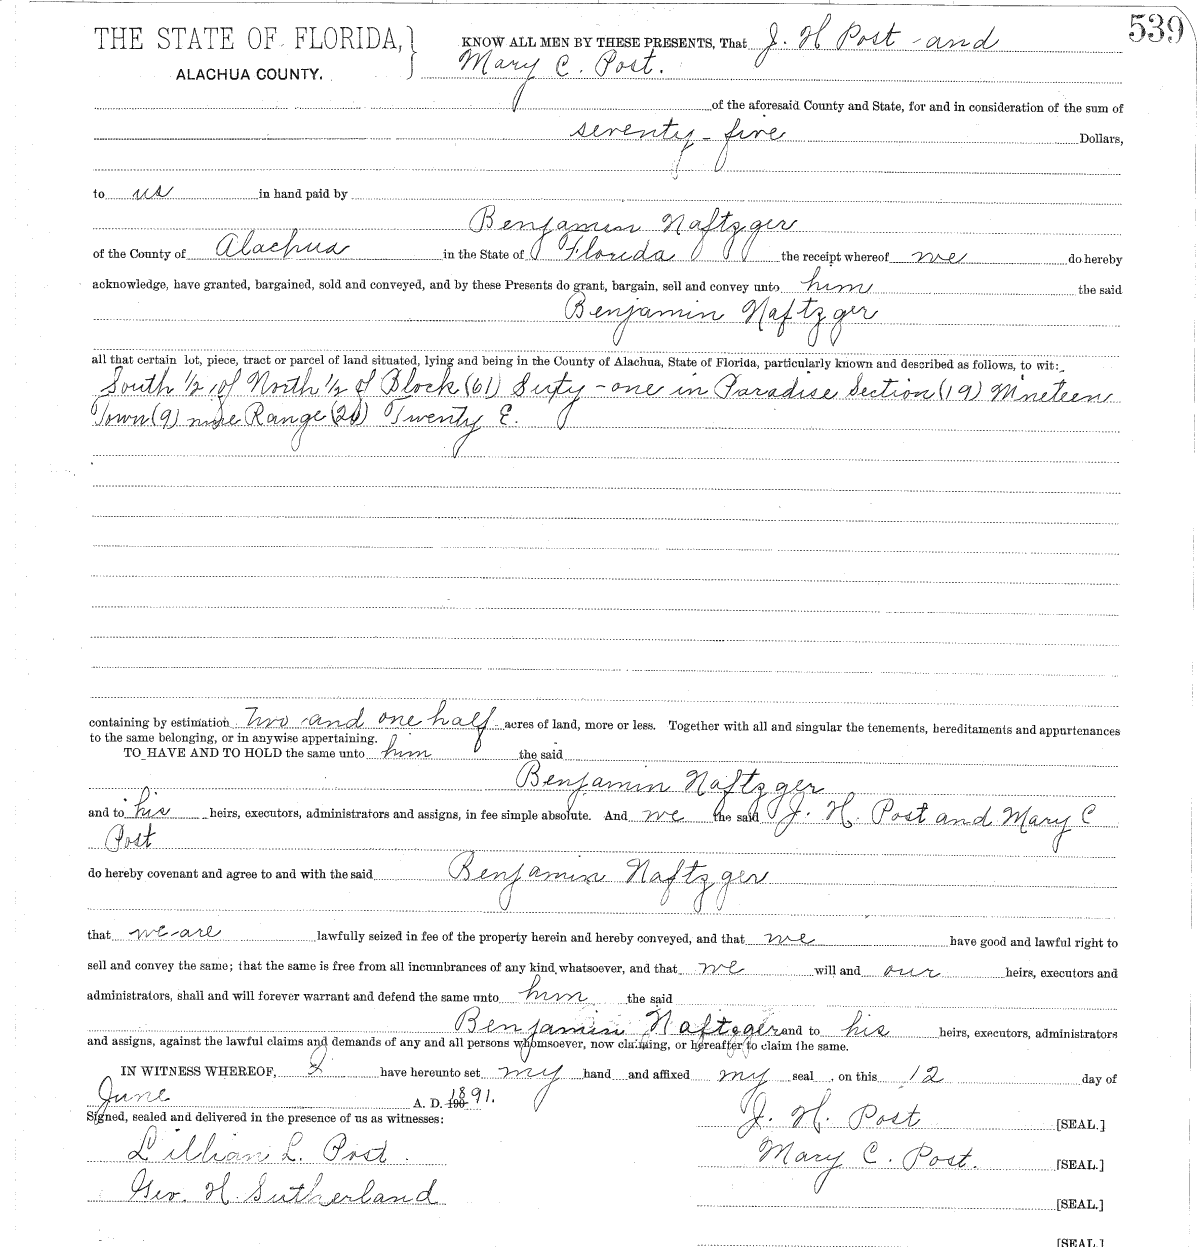 539
THE STATE OF FLORIDA, } KNOW ALL MEN BY THESE PRESENTS, That J. H Post and
ALACHUA COUNTY. Mary C. Post.
of the aforesaid County and State, for and in consideration of the sum of
seventy-five Dollars,
to us in hand paid by
Benjamin Naftzger
of the County of Alachua in the State of Florida the receipt whereof we do hereby
acknowledge, have granted, bargained, sold and conveyed, and by these Presents do grant, bargain, sell and convey unto him the said
Benjamin Naftzger
all that certain lot, piece, tract or parcel of land situated, lying and being in the County of Alachua, State of Florida, particularly known and described as follows, to wit:
South 1/2 of North 1/2 of Block (61) Sixty-one in Paradise Section (19) Nineteen
Town (9) nine Range (20) Twenty E.
containing by estimation Two and one half acres of land, more or less. Together with all and singular the tenements, hereditaments and appurtenances
to the same belonging, or in anywise appertaining.
TO HAVE AND TO HOLD the same unto him the said
Benjamin Naftzger
and to his heirs, executors, administrators and assigns, in fee simple absolute. And we the said J. H. Post and Mary C
Post
do hereby covenant and agree to and with the said Benjamin Naftzger
that we are lawfully seized in fee of the property herein and hereby conveyed, and that we have good and lawful right to
sell and convey the same; that the same is free from all incumbrances of any kind whatsoever, and that we will and our heirs, executors and
administrators, shall and will forever warrant and defend the same unto him the said
Benjamin Naftzger and to his heirs, executors, administrators
and assigns, against the lawful claims and demands of any and all persons whomsoever, now claiming, or hereafter to claim the same.
IN WITNESS WHEREOF, I have hereunto set my hand and affixed my seal , on this 12 day of
June A. D. 190 1891.
Signed, sealed and delivered in the presence of us as witnesses: J. H. Post [SEAL.]
Lillian L. Post. Mary C. Post. [SEAL.]
Geo. H Sutherland [SEAL.]
[SEAL.]